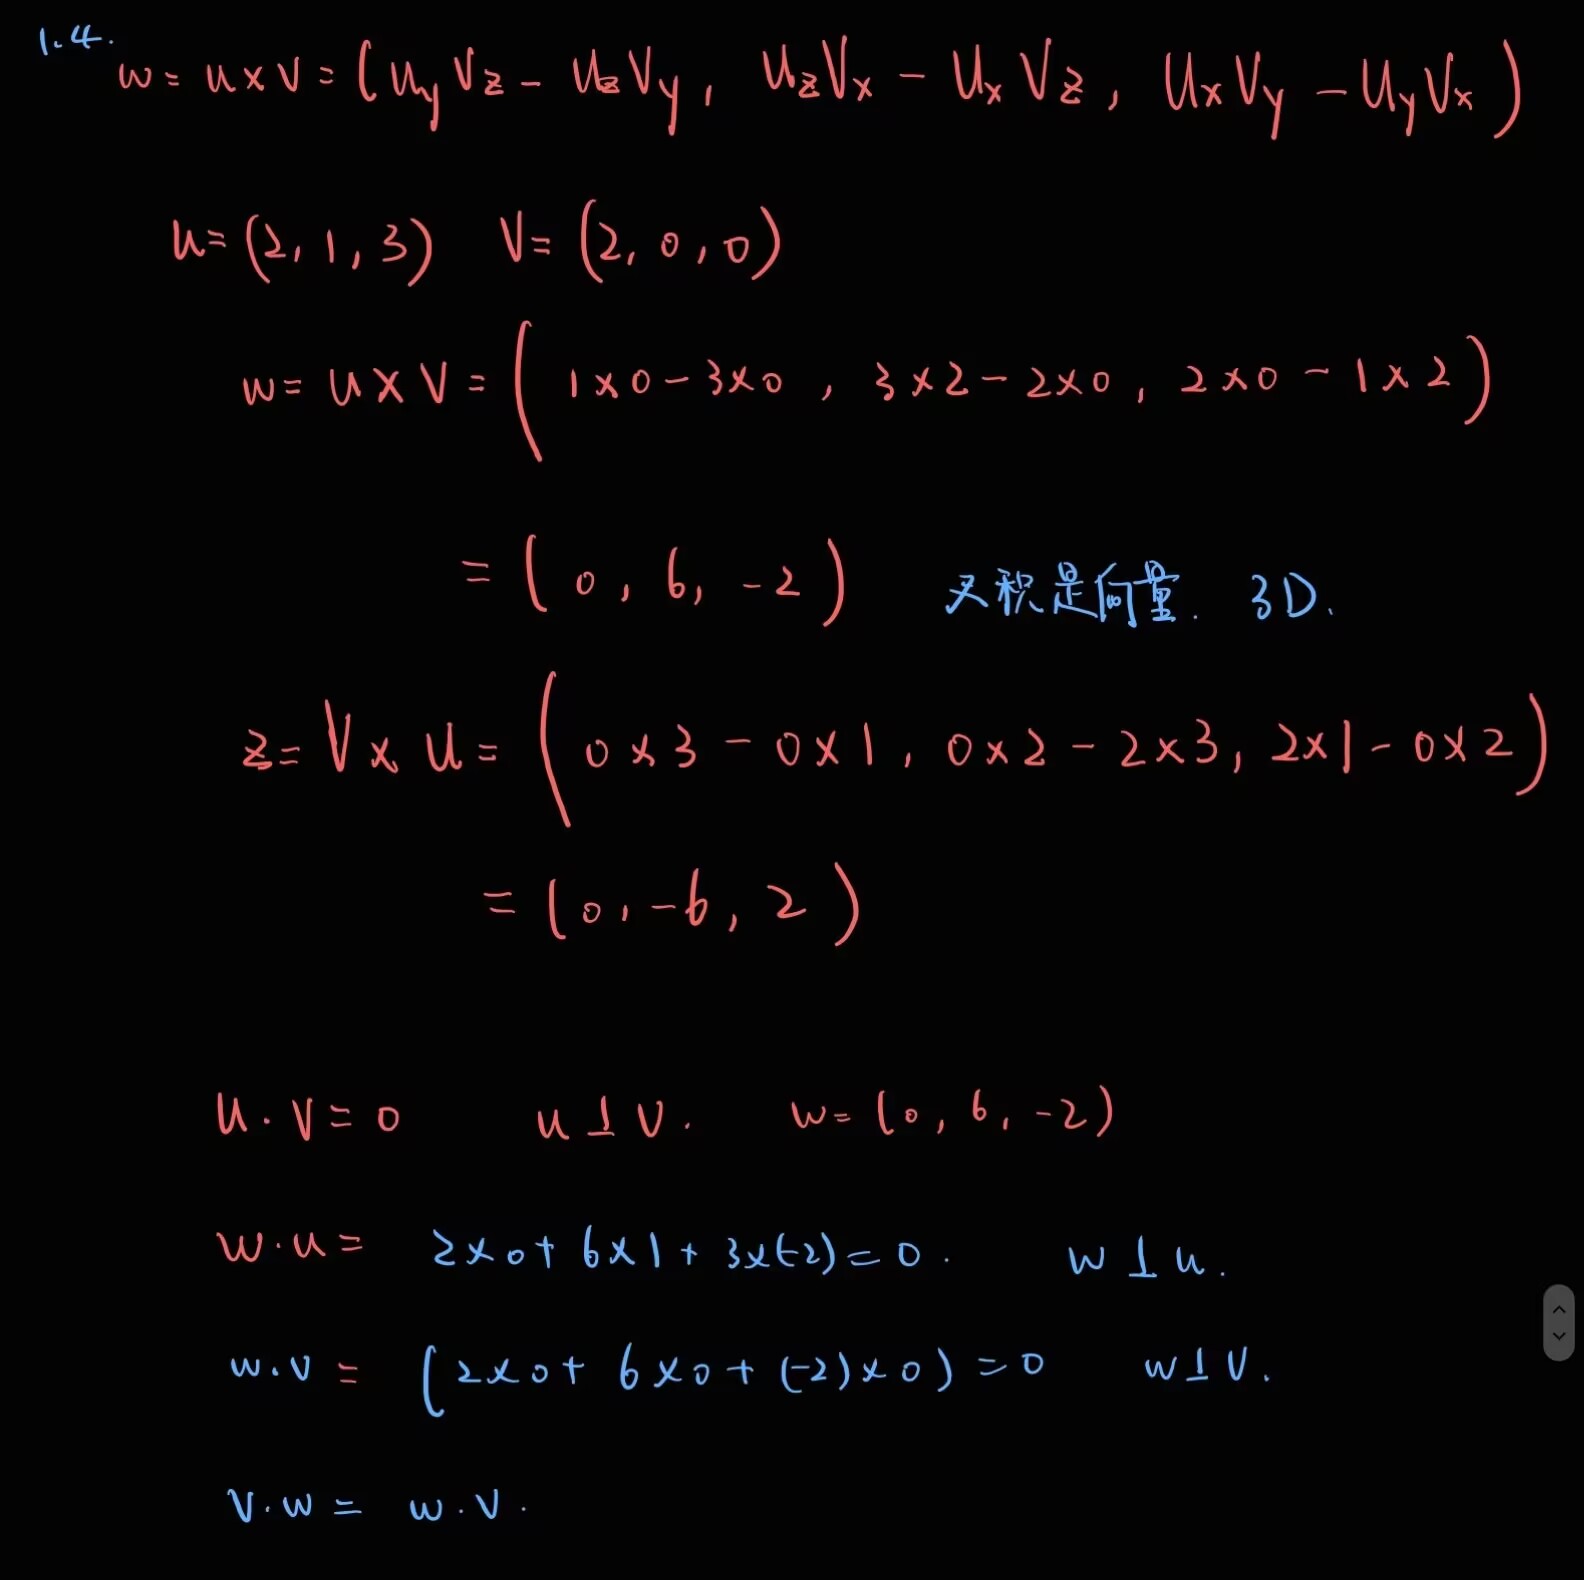 1.4.
w = u × v = (u_y v_z - u_z v_y, u_z v_x - u_x v_z, u_x v_y - u_y v_x)
u = (2, 1, 3) v = (2, 0, 0)
w = u × v = (1×0 - 3×0, 3×2 - 2×0, 2×0 - 1×2)
= (0, 6, -2) 叉积是向量. 3D.
z = v × u = (0×3 - 0×1, 0×2 - 2×3, 2×1 - 0×2)
= (0, -6, 2)
u · v = 0 u ⊥ v. w = (0, 6, -2)
w · u = 2×0 + 6×1 + 3×(-2) = 0. w ⊥ u.
w · v = (2×0 + 6×0 + (-2)×0) = 0 w ⊥ v.
v · w = w · v.